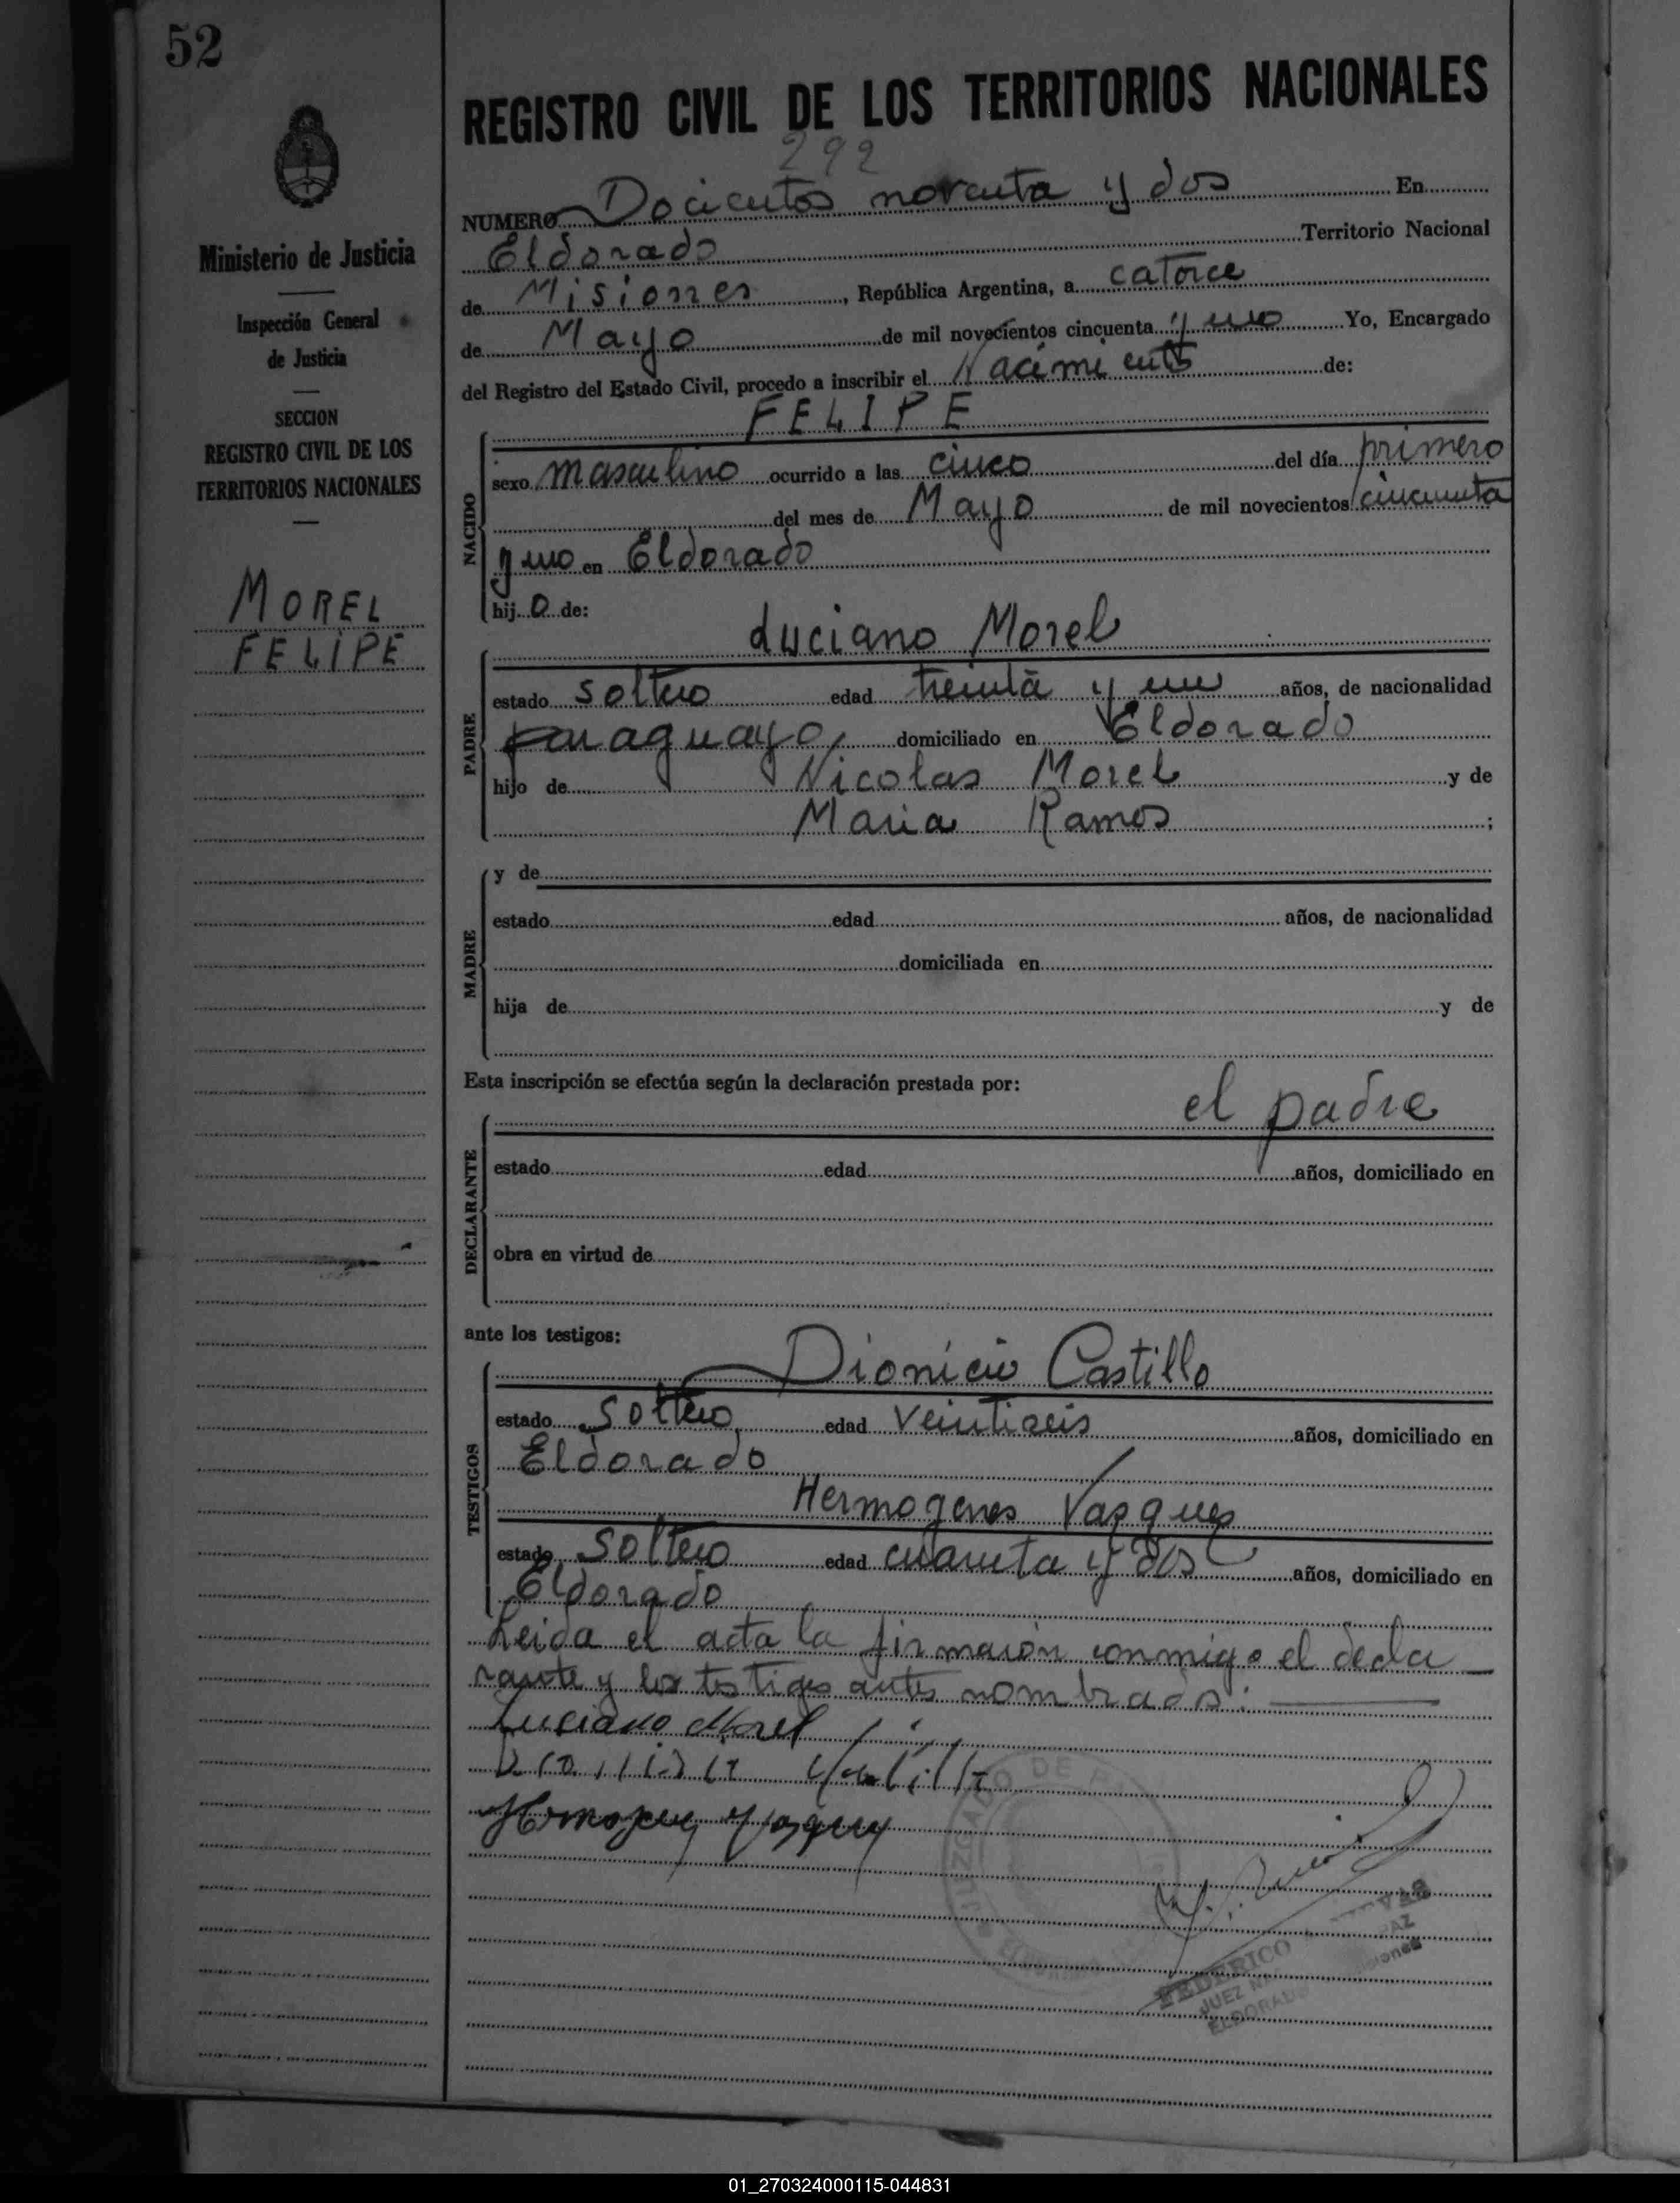 52
Ministerio de Justicia
Inspección General
de Justicia
SECCION
REGISTRO CIVIL DE LOS
TERRITORIOS NACIONALES
MOREL
FELIPE
REGISTRO CIVIL DE LOS TERRITORIOS NACIONALES
292
NUMERO Docientos noventa y dos En
Eldorado Territorio Nacional
de Misiones, República Argentina, a catorce
de Mayo de mil novecientos cincuenta y uno Yo, Encargado
del Registro del Estado Civil, procedo a inscribir el Nacimiento de:
FELIPE
NACIDO
sexo masculino ocurrido a las cinco del día primero
del mes de Mayo de mil novecientos cincuenta
y uno en Eldorado
hijo de:
Luciano Morel
PADRE
estado soltero edad treinta y un años, de nacionalidad
paraguayo, domiciliado en Eldorado
hijo de Nicolas Morel y de
Maria Ramos ;
MADRE
y de
estado edad años, de nacionalidad
domiciliada en
hija de y de
Esta inscripción se efectúa según la declaración prestada por:
el padre
DECLARANTE
estado edad años, domiciliado en
obra en virtud de
ante los testigos:
Dionicio Castillo
TESTIGOS
estado soltero, edad veintiseis años, domiciliado en
Eldorado
Hermogenes Vasques
estado soltero edad cuarenta y dos años, domiciliado en
Eldorado
Leida el acta la firmaron conmigo el decla
rante y los testigos antes nombrados:
Luciano Morel
Hermogenes Vasquez
FEDERICO
JUEZ
PAZ
ELDORADO
Misiones
01_270324000115-044831